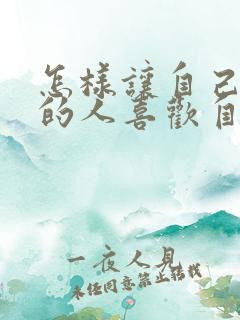 怎樣讓自己
的人喜歡自
一夜人見
未经同意禁止转载